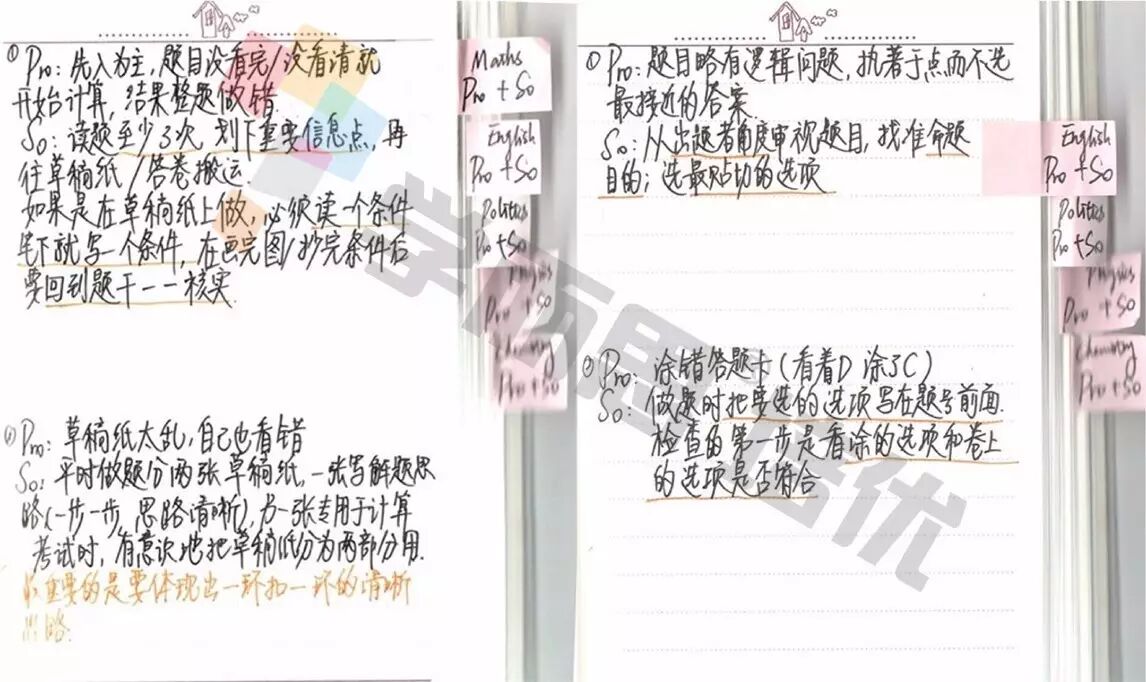 ① Pro: 先入为主，题目没看完/没看清就
开始计算，结果整题做错
So: 读题至少3次，划下重要信息点，再
往草稿纸/答卷搬运.
如果是在草稿纸上做，必须读一个条件
笔下就写一个条件，在画完图/抄完条件后
要回到题干一一核实.
Pro: 草稿纸太乱，自己也看错
So: 平时做题分两张草稿纸，一张写解题思
路(一步一步，思路清晰)，另一张专用于计算
考试时，有意识地把草稿纸分为两部分用.
最重要的是要体现出一环扣一环的清晰
思路.
Maths
Pro + So
English
Pro + So
Politics
Pro + So
Physics
Pro + So
Chemistry
Pro + So
① Pro: 题目略有逻辑问题，执著于点而不选
最接近的答案.
So: 从出题者角度审视题目，找准命题
目的；选最贴切的选项
Pro: 涂错答题卡(看着D 涂了C)
So: 做题时把要选的选项写在题号前面.
检查的第一步是看涂的选项和卷上
的选项是否符合
English
Pro + So
Politics
Pro + So
Physics
Pro + So
Chemistry
Pro + So
学而思培优